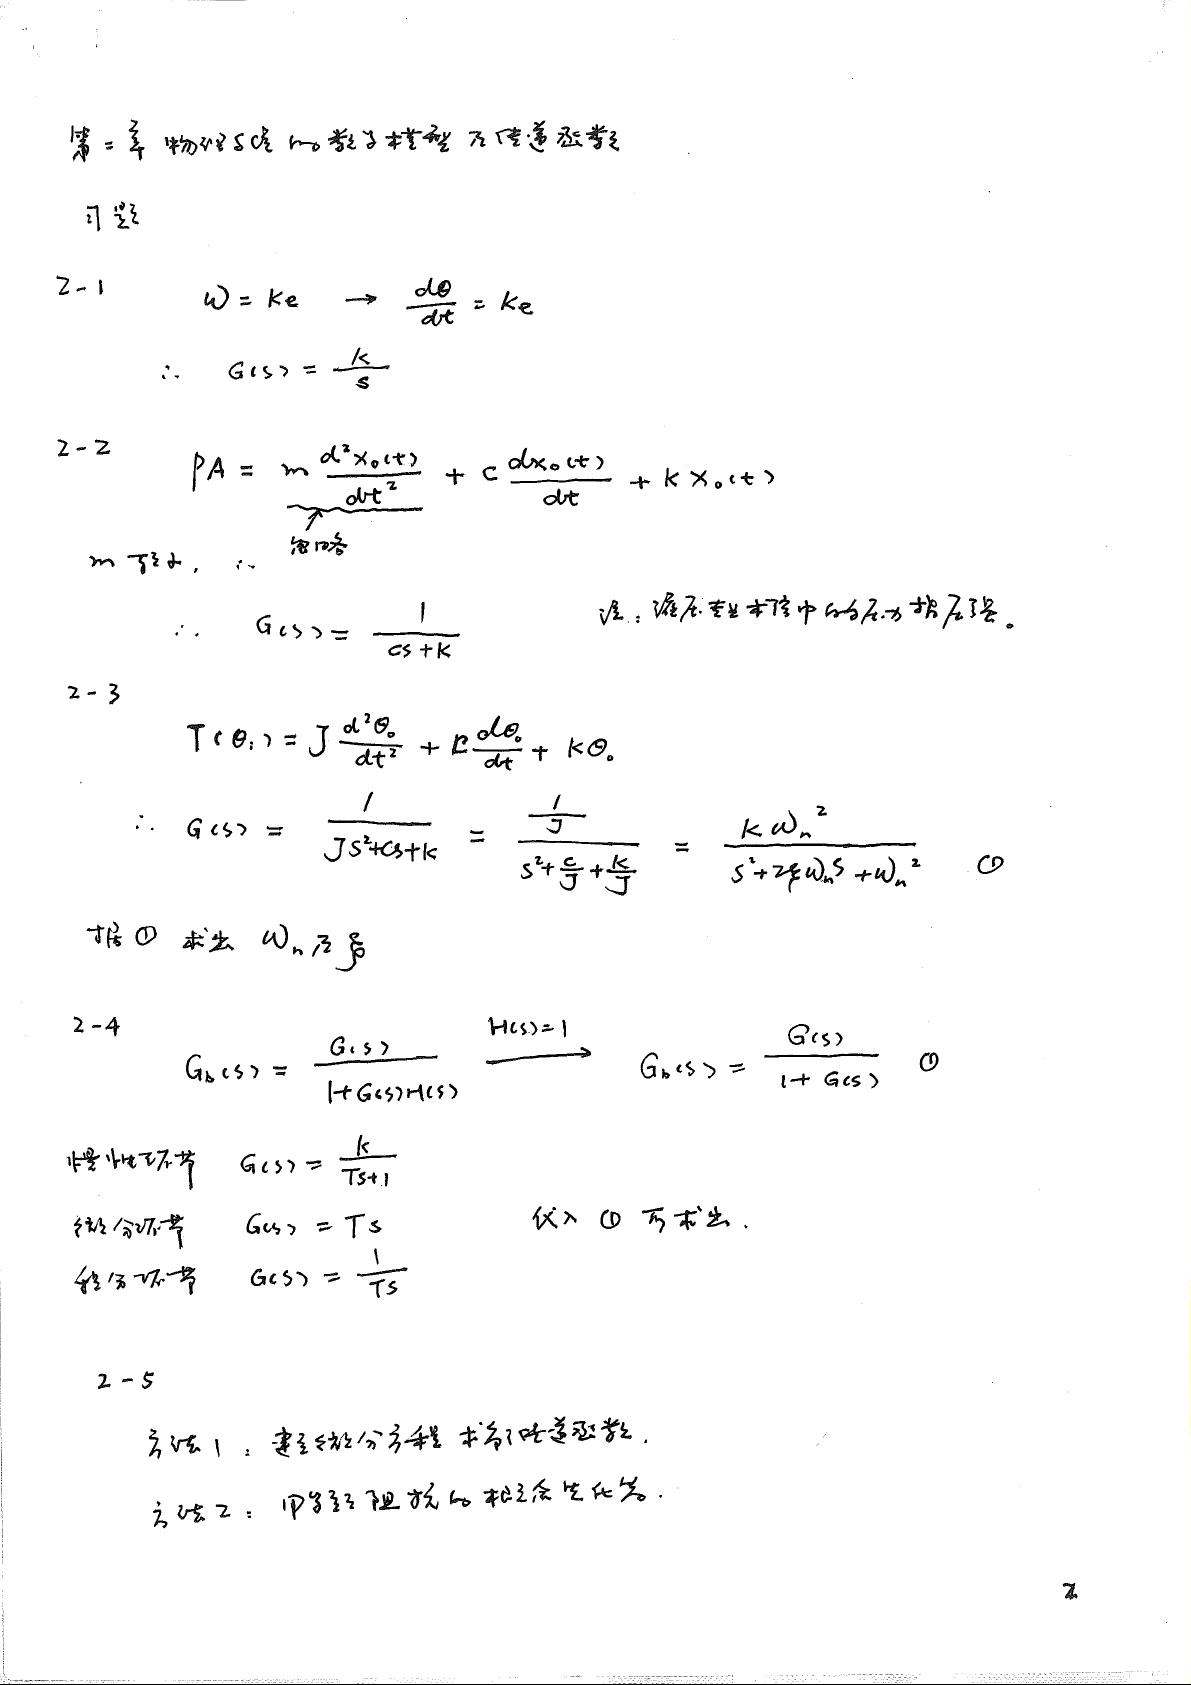 第二章 物理系统的数学模型及传递函数
习题
2-1 ω = ke → dθ/dt = ke
∴ G(s) = k/s
2-2 PA = m d²x₀(t)/dt² + c dx₀(t)/dt + k x₀(t)
忽略
m 很小, ∴
∴ G(s) = 1/(cs+k) 注:液压专业术语中的压力指压强。
2-3
T(θᵢ) = J d²θ₀/dt² + c dθ₀/dt + kθ₀
∴ G(s) = 1/(Js²+cs+k) = (1/J)/(s²+c/J+k/J) = kωₙ²/(s²+2ξωₙs+ωₙ²) ①
据① 求出 ωₙ及ξ
2-4 G_b(s) = G(s)/(1+G(s)H(s)) H(s)=1 → G_b(s) = G(s)/(1+G(s)) ①
惯性环节 G(s) = k/(Ts+1)
微分环节 G(s) = Ts 代入 ① 可求出.
积分环节 G(s) = 1/(Ts)
2-5
方法1: 建立微分方程 求解传递函数.
方法2: 用复阻抗的概念先化为.
2